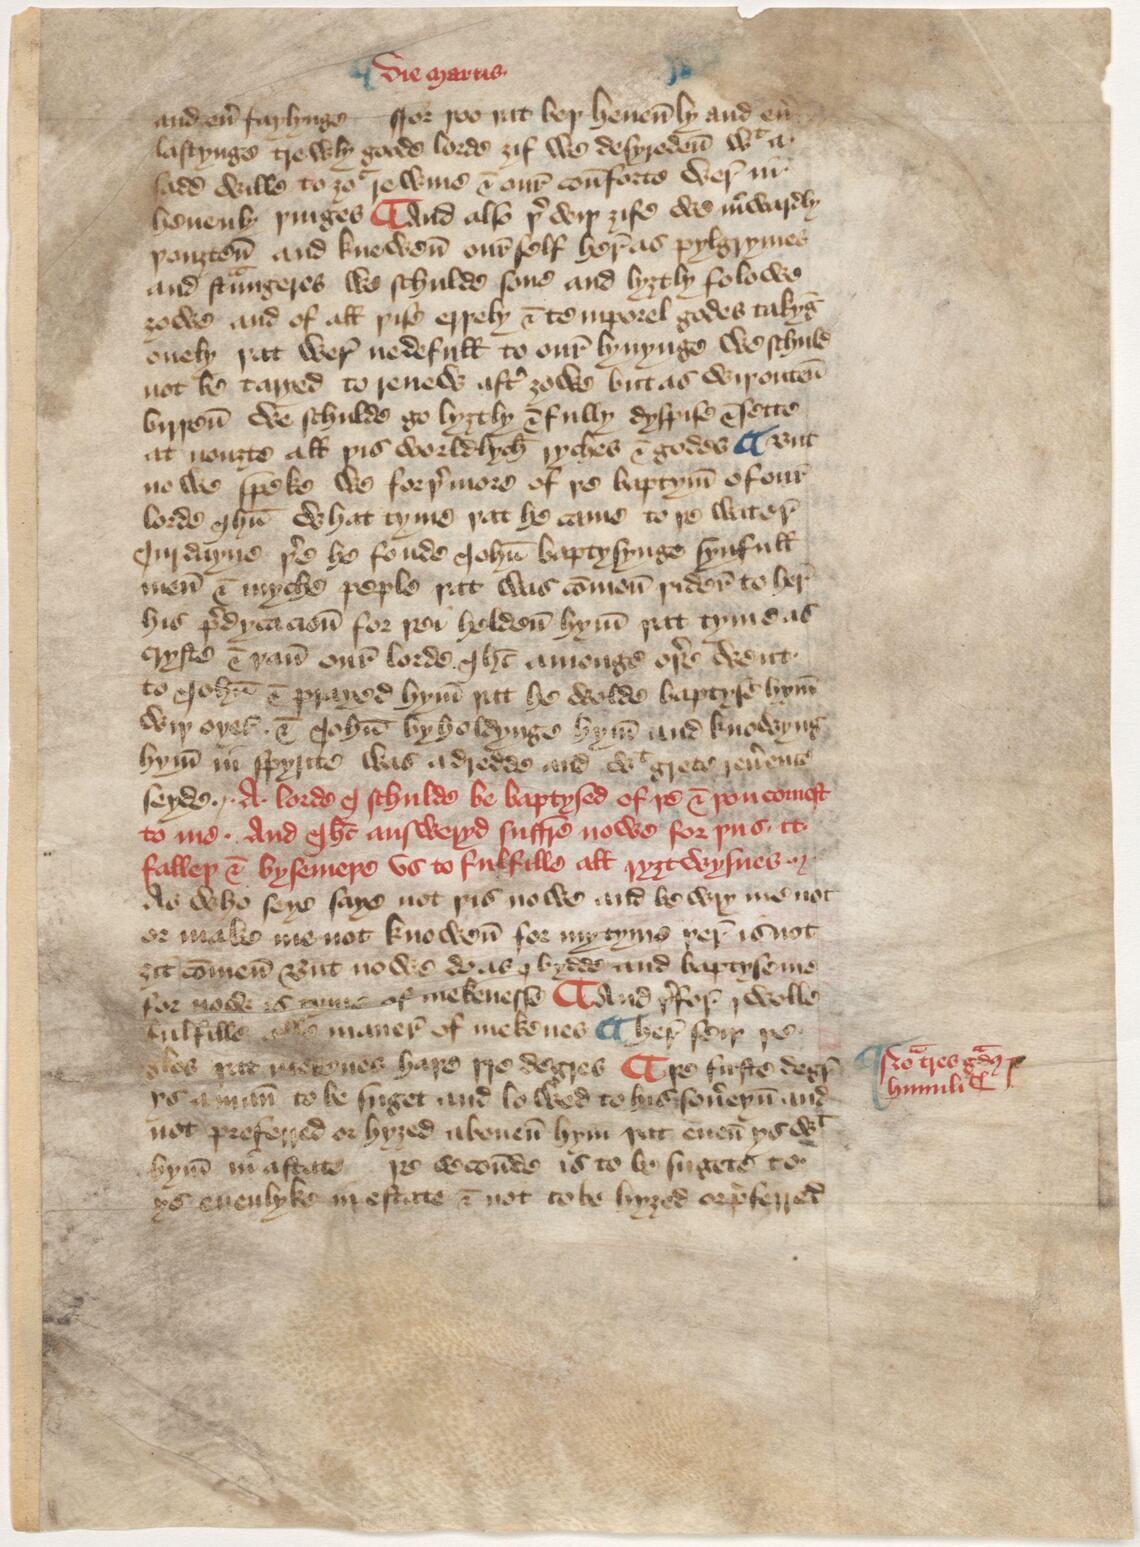 Die martis
and eu̅ faylynge ffor þoo þat beþ heuenly and eu̅
lastynge trewly goode lorde ȝif we desyreden̅ wt a
sadd wille to ȝor rewme & our̅ conforte wer̅ in
heuenly þinges ¶ And also þer wiþ ȝife we in̅wardly
þouȝten̅ and knowen̅ our̅ self her̅ as pylgrymes
and straungeres we schulde sone and lyȝtly folowe
ȝowe and of all þise erþely & temporel godes takyng̅
onely þat wer̅ nedefull to our̅ lyuynge we schuld
not be taryed to renew aftr ȝowe but as wiþouten̅
birþen̅ we schulde go lyȝtly & fully dyspise & sette
at nouȝte all þis worldlych̅ ryches & godes ¶ But
nowe speke we forþermore of þe baptym̅ of our̅
lorde Jhu̅ What tyme þat he came to þe water̅
Jurdayne þere he fonde John̅ baptysynge synfull
men̅ & myche peple þat was co̅men̅ þider̅ to her̅
his predycacion̅ for þei helden̅ hym̅ þat tyme as
cryste & þan̅ our̅ lorde Jhc̅ amonge oþere went
to John̅ & prayed hym̅ þat he wolde baptyse hym̅
wiþ oþer̅ & John̅ byholdynge hym̅ and knowyng
hym̅ in̅ spyrite was adredde and wt grete reuerence
seyde. A lorde I schulde be baptysed of þe & þou comest
to me. And Jhc̅ answeryd suffre nowe for þus it
falleþ & bysemeþe vs to fulfille all ryȝtwysnes
As who seye saye not þis nowe and bewry me not
or make me not knowen̅ for my tyme þer̅ is not
ȝit co̅men̅ But nowe do as I bydde and baptyse me
for nowe is tyme of mekenesse ¶ And þerfor̅ I wolle
fulfille alle maner̅ of mekenes ¶ her̅ seiþ þe
glos þat mekenes haþe þre degres ¶ Þe firste degr̅
ys a man̅ to be suget and lowed to his souereyn̅ and
not preferred or hyȝed abouen̅ hym þat euen̅ ys wt
hym̅ in̅ astate þe secon̅de is to be sugete to
ys euenlyke in estate & not to be hyȝed or preferred
¶ No tres gradus
humilitatis